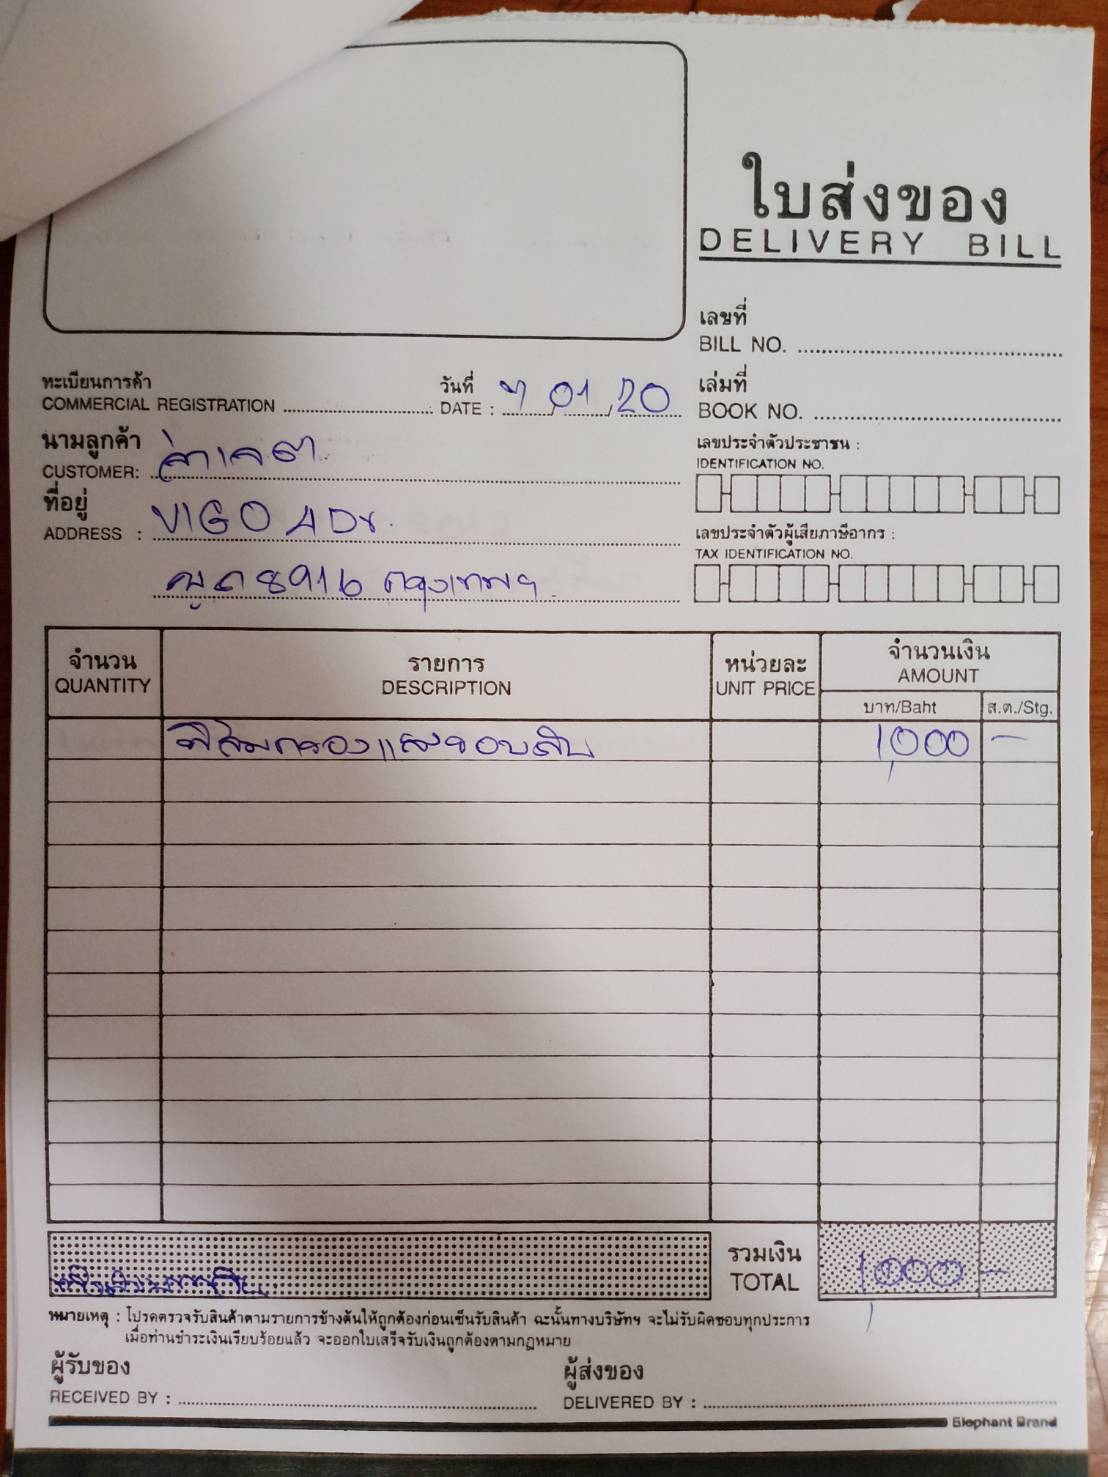 ใบส่งของ
DELIVERY BILL
เลขที่
BILL NO.
ทะเบียนการค้า
COMMERCIAL REGISTRATION
วันที่
DATE : 7 / 01 / 20
เล่มที่
BOOK NO.
นามลูกค้า
CUSTOMER:
เลขประจำตัวประชาชน :
IDENTIFICATION NO.
ที่อยู่
ADDRESS : VIGO 4Dr.
8916 กรุงเทพฯ
เลขประจำตัวผู้เสียภาษีอากร :
TAX IDENTIFICATION NO.
จำนวน รายการ หน่วยละ จำนวนเงิน
QUANTITY DESCRIPTION UNIT PRICE AMOUNT
บาท/Baht ส.ต./Stg.
ฟิล์มกรองแสงขอบดำ 1,000 -
รวมเงิน
TOTAL 1,000 -
หมายเหตุ : โปรดตรวจรับสินค้าตามรายการข้างต้นให้ถูกต้องก่อนเซ็นรับสินค้า ฉะนั้นทางบริษัทฯ จะไม่รับผิดชอบทุกประการ
เมื่อท่านชำระเงินเรียบร้อยแล้ว จะออกใบเสร็จรับเงินถูกต้องตามกฎหมาย
ผู้รับของ
RECEIVED BY :
ผู้ส่งของ
DELIVERED BY :
Elephant Brand